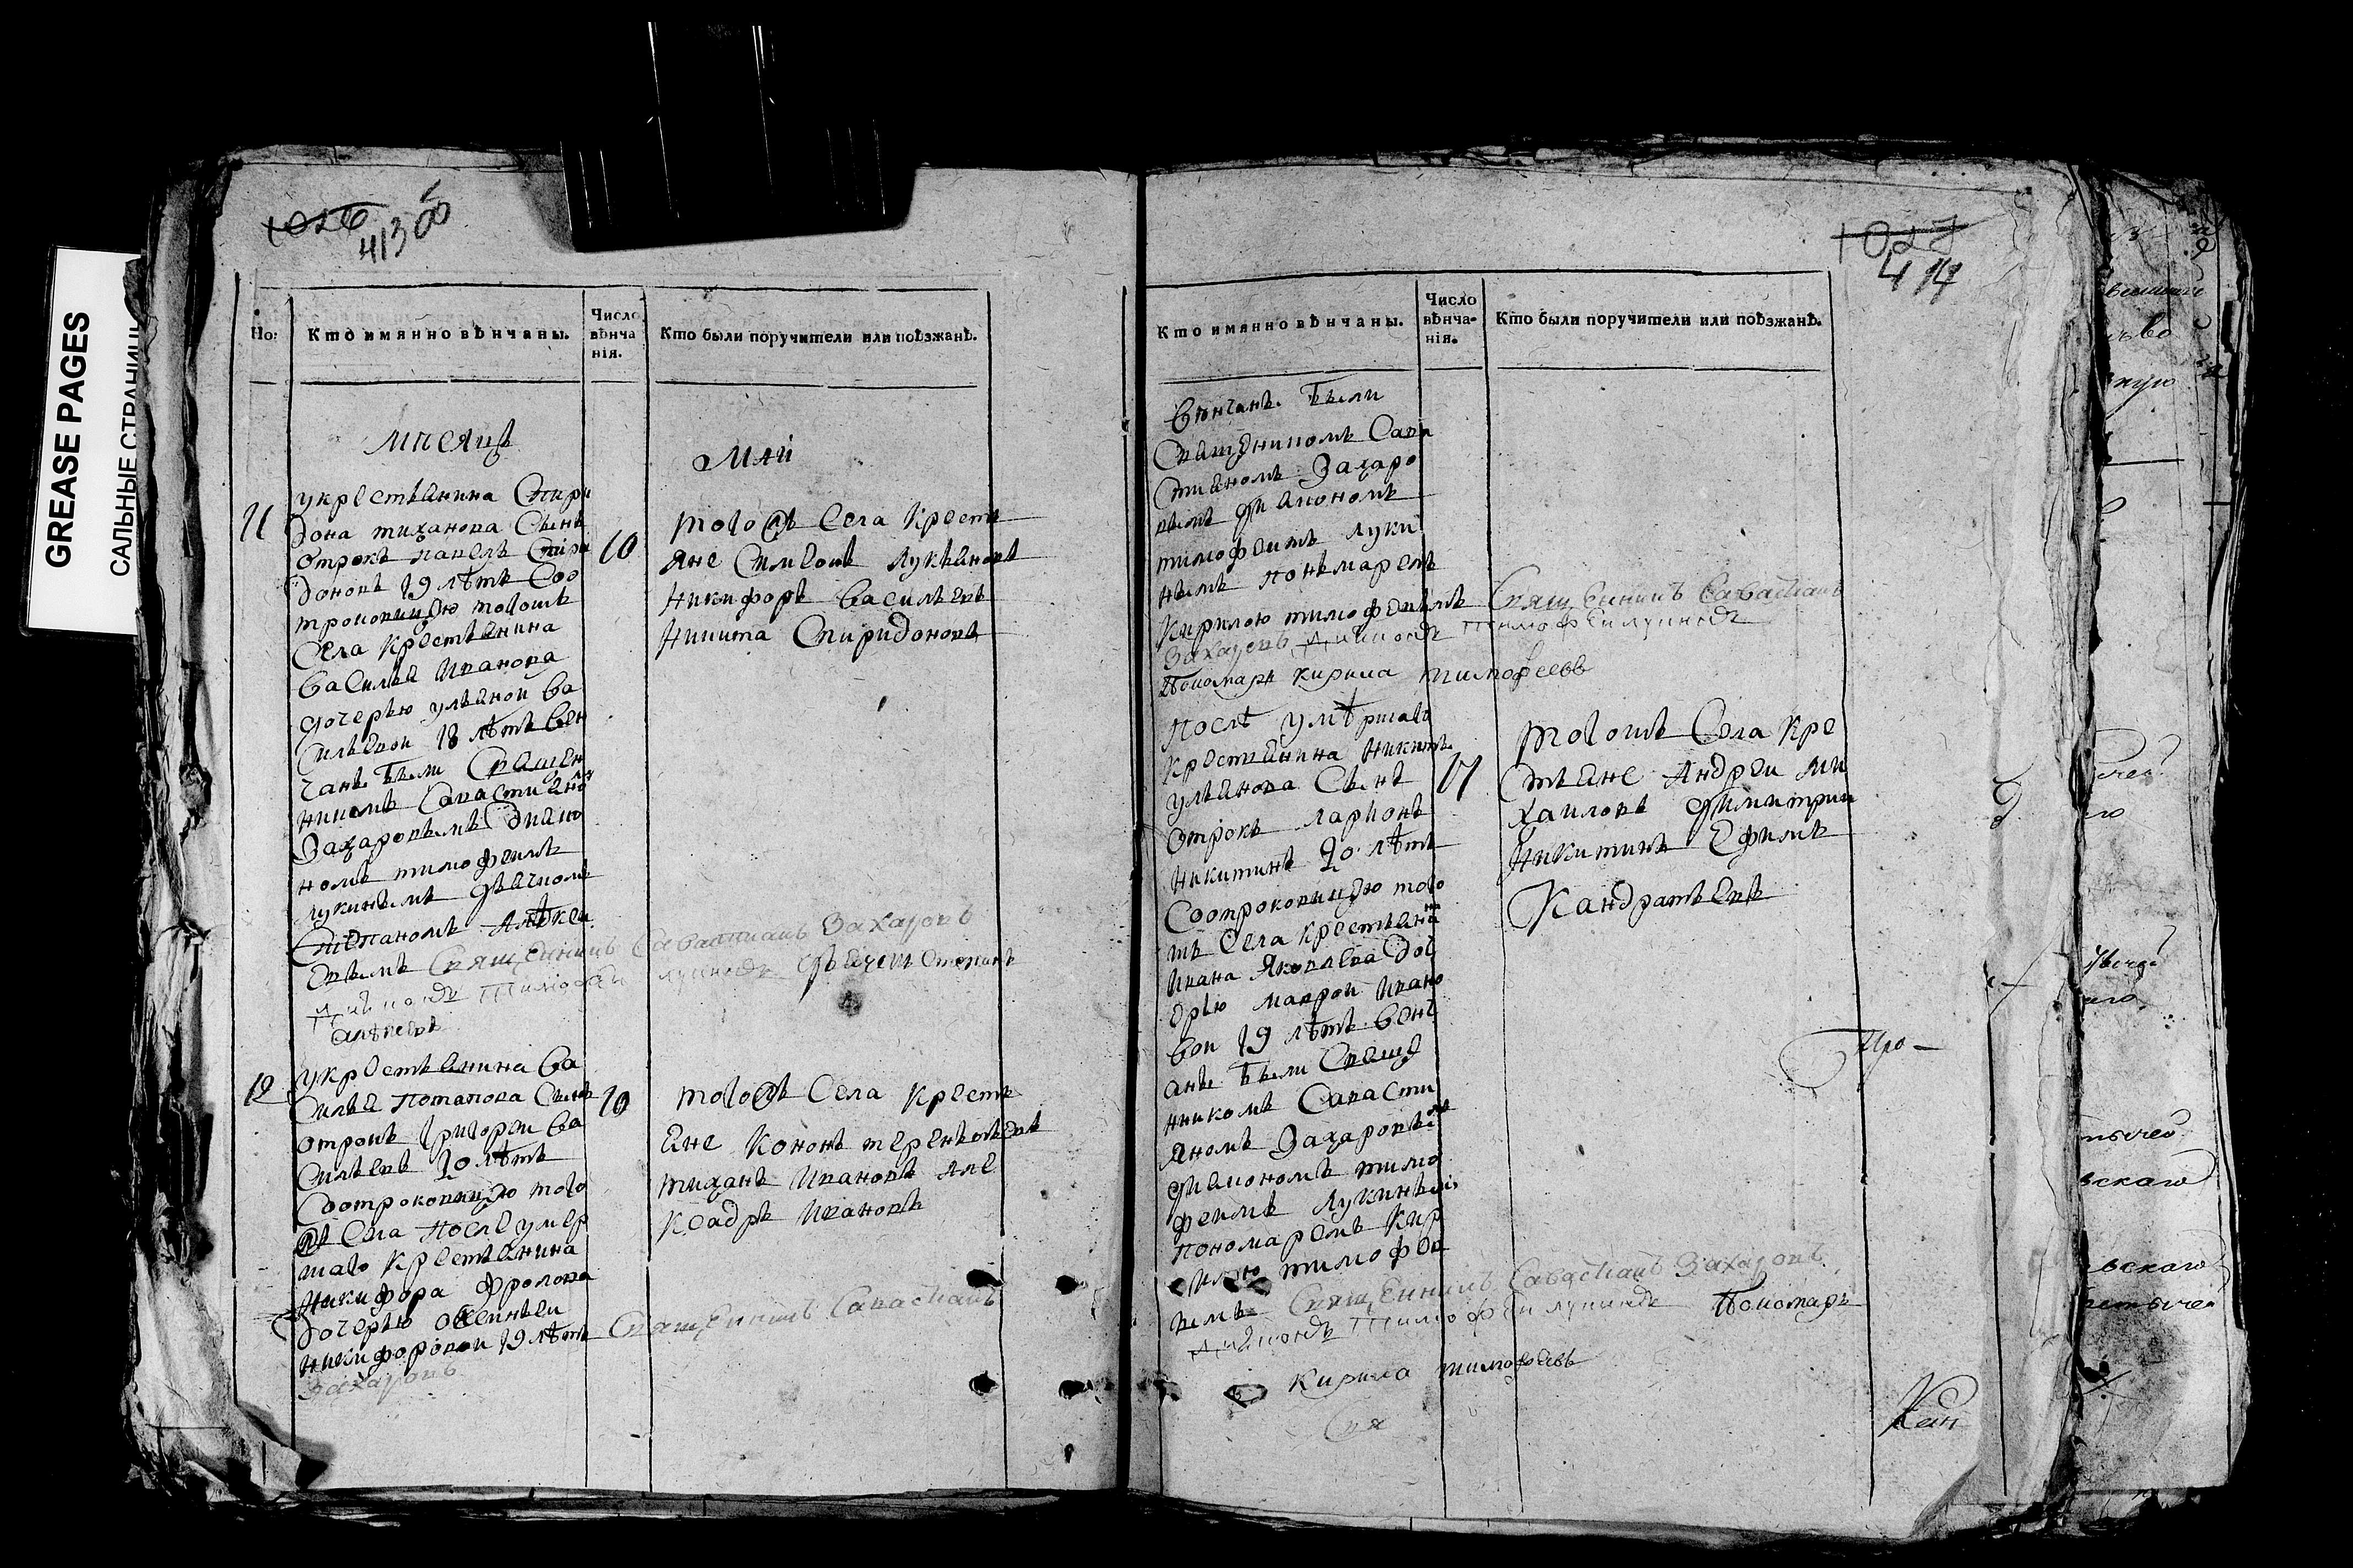 GREASE PAGES
САЛЬНЫЕ СТРАНИЦЫ
1026
413 об
Но:
Кто имянно вѣнчаны.
Число вѣнча нія.
Кто были поручители или поѣзжанѣ.
мпсяцъ
май
11
укрестьянина Спири
дона тиханова Сынъ
отрокъ павелъ Спири
доновъ 19 лѣтъ Соо
троковицею тогожъ
Села крестьянина
василья иванова
дочерью ульяной ва
сильевой 18 лѣтъ вен
чанъ были Священ
никомъ Савастиано
Захаровымъ диако
номъ тимофеимъ
лукинымъ дьячкомъ
Степаномъ Алѣксе
евымъ Священникъ Савастианъ Захаровъ
Диаконъ Тимофеи лукинъ дьячекъ Степанъ
алѣксевъ
10
того жъ Села Крестъ
яне Симеонъ Лукьяновъ
Никифоръ васильевъ
Никита Спиридоновъ
12
укрестьянина ва
силья потапова Сынъ
отрокъ григореи ва
сильевъ 20 лѣтъ
Соотроковицею того
жъ Села после умер
шаго крестьянина
Никифора фролова
дочерью
никифоровои 19 лѣтъ Священникъ Савастианъ
Захаровъ
10
того жъ Села крестъ
яне кононъ терентьевъ
тиханъ ивановъ але
ксадръ ивановъ
1027
414
Кто имянно вѣнчаны.
Число вѣнча- нія.
Кто были поручители или поѣзжанѣ.
вѣнчанъ были
Священикомъ Сава
стианомъ Захаро
вымъ диакономъ
тимофеимъ луки
нымъ пономаремъ
кирилою тимофеевымъ Священникъ Савастианъ
Захаровъ Диаконъ Тимофеи лукинъ
Пономарь кирила тимофеевъ
послѣ умѣршаго
крестьянина Никиты
ульянова Сынъ
отрокъ ларионъ
никитинъ 20 лѣтъ
Соотроковицею того
жъ Села крестьянина
ивана Яковлева доч
ерью маврои ивано
вои 19 лѣтъ венч
анъ были Свяще
нникомъ Савасти
яномъ Захаровымъ
диакономъ тимо
феимъ лукинымъ
пономаремъ кир
илою тимофее
вымъ Священникъ Савастианъ Захаровъ
Диаконъ Тимофеи лукинъ Пономарь
кирила тимофеевъ
17
тогожъ Села кре
стьяне Андреи ми
хаиловъ димитрии
Никитинъ Ефимъ
Кандратьевъ